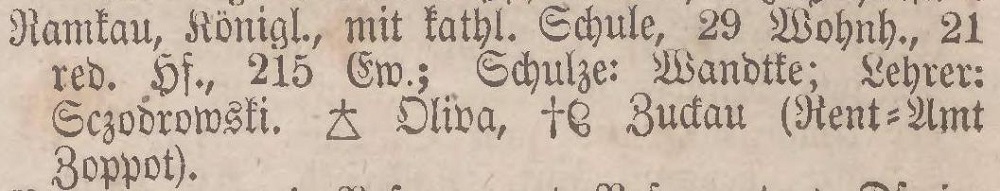 Ramkau, Königl., mit kathl. Schule, 29 Wohnh., 21
red. Hf., 215 Ew.; Schulze: Wandtke; Lehrer:
Sczodrowski. Oliva, † Zuckau (Rent-Amt
Zoppot).